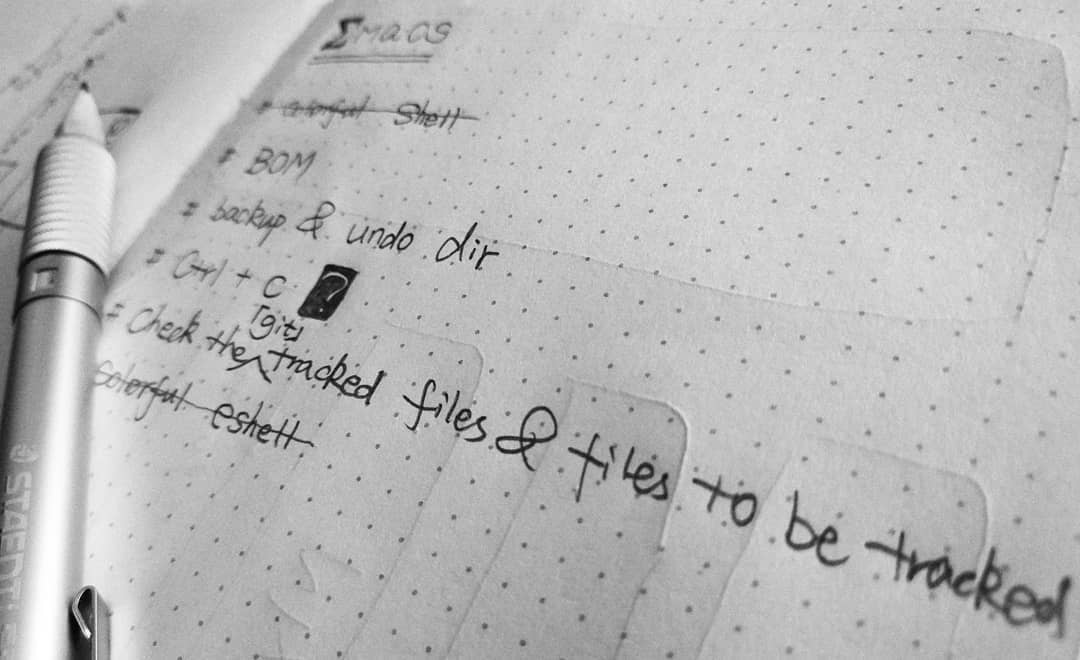 Σmacs
colorful shell
BOM
backup & undo dir
Ctrl + C ?
「git」
check the tracked files & files to be tracked
colorful eshell
STAEDT